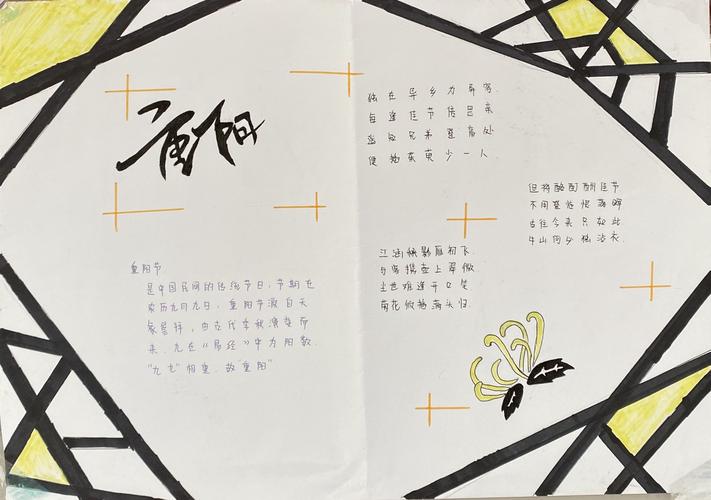 重阳
独在异乡为异客.
每逢佳节倍思亲
遥知兄弟登高处
便插茱萸少一人.
但将酩酊酬佳节
不用登临恨落晖
古往今来只如此
牛山何必独沾衣.
江涵秋影雁初飞
与客携壶上翠微
尘世难逢开口笑
菊花须插满头归.
重阳节
是中国民间的传统节日,节期在
农历九月九日,重阳节源自天
象崇拜,由古代季秋演变而
来.九在《易经》中为阳数.
"九九"相重,故"重阳"